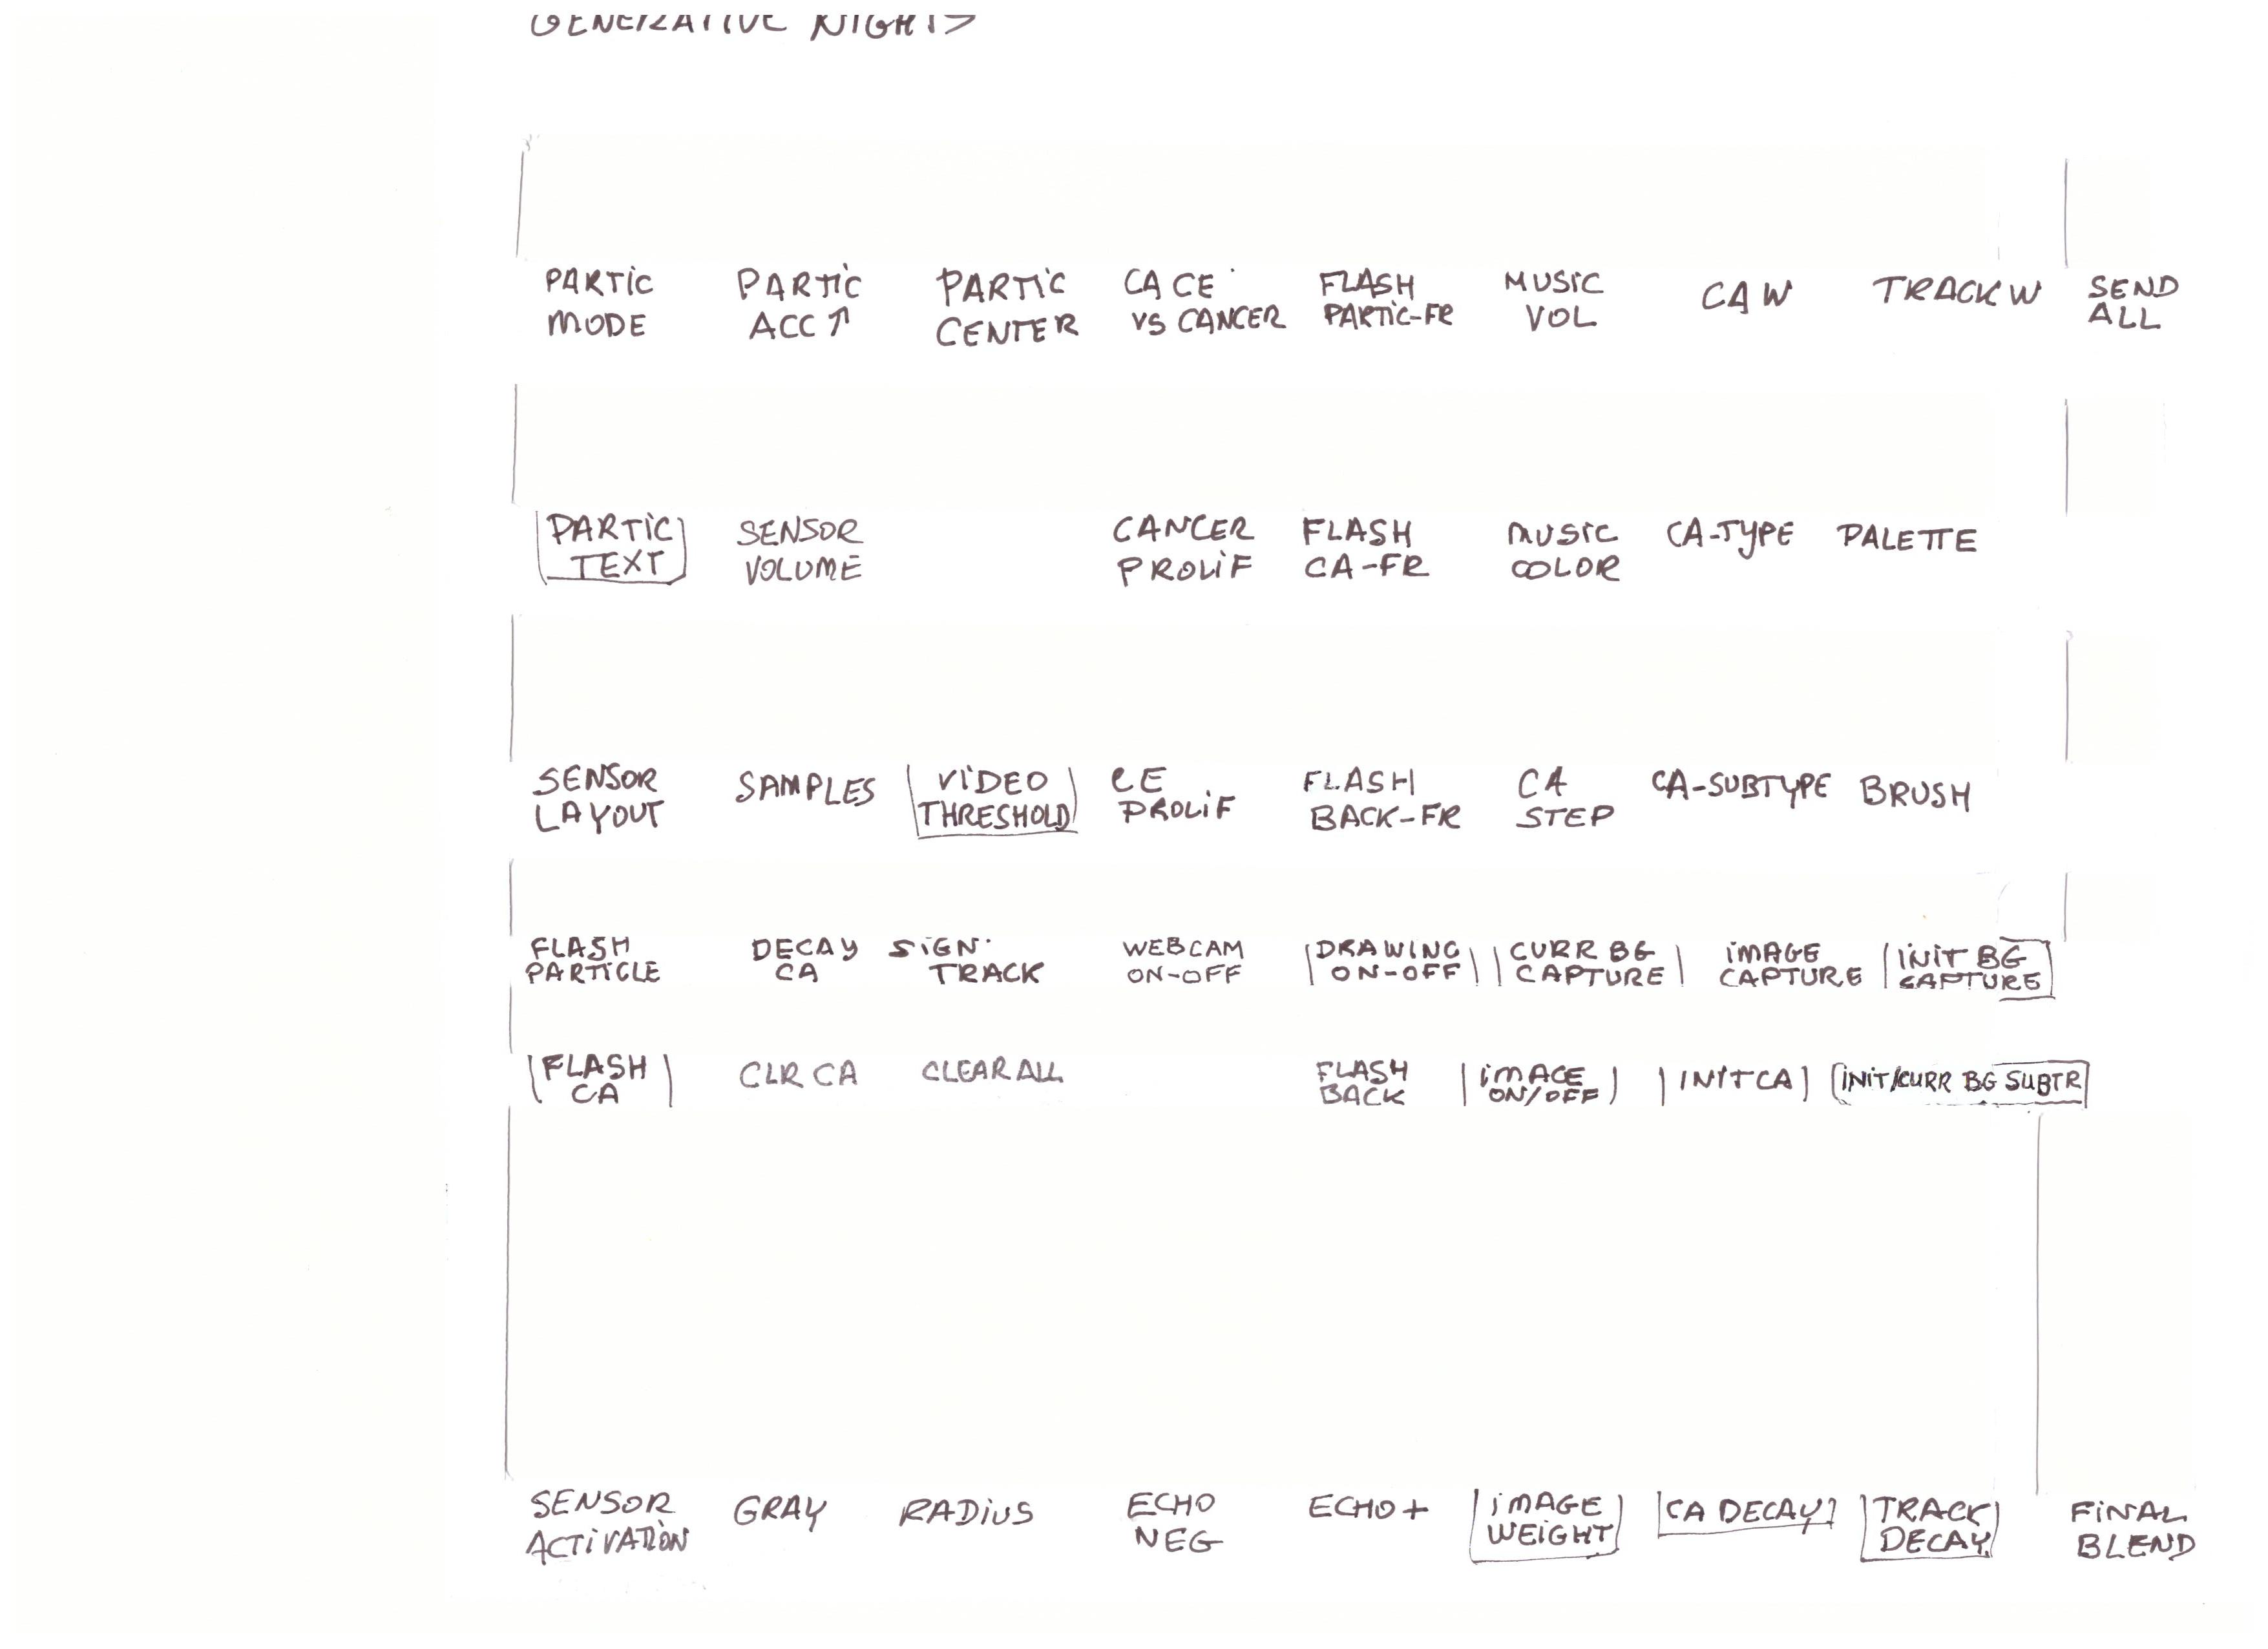 GENERATIVE NIGHTS
PARTIC MODE
PARTIC ACC ↑
PARTIC CENTER
CA CE VS CANCER
FLASH PARTIC-FR
MUSIC VOL
CA W
TRACK W
SEND ALL
PARTIC TEXT
SENSOR VOLUME
CANCER PROLIF
FLASH CA-FR
MUSIC COLOR
CA-TYPE
PALETTE
SENSOR LAYOUT
SAMPLES
VIDEO THRESHOLD
CE PROLIF
FLASH BACK-FR
CA STEP
CA-SUBTYPE
BRUSH
FLASH PARTICLE
DECAY CA
SIGN. TRACK
WEBCAM ON-OFF
DRAWING ON-OFF
CURR BG CAPTURE
IMAGE CAPTURE
INIT BG CAPTURE
FLASH CA
CLR CA
CLEAR ALL
FLASH BACK
IMAGE ON/OFF
INIT CA
INIT/CURR BG SUBTR
SENSOR ACTIVATION
GRAY
RADIUS
ECHO NEG
ECHO +
IMAGE WEIGHT
CA DECAY
TRACK DECAY
FINAL BLEND